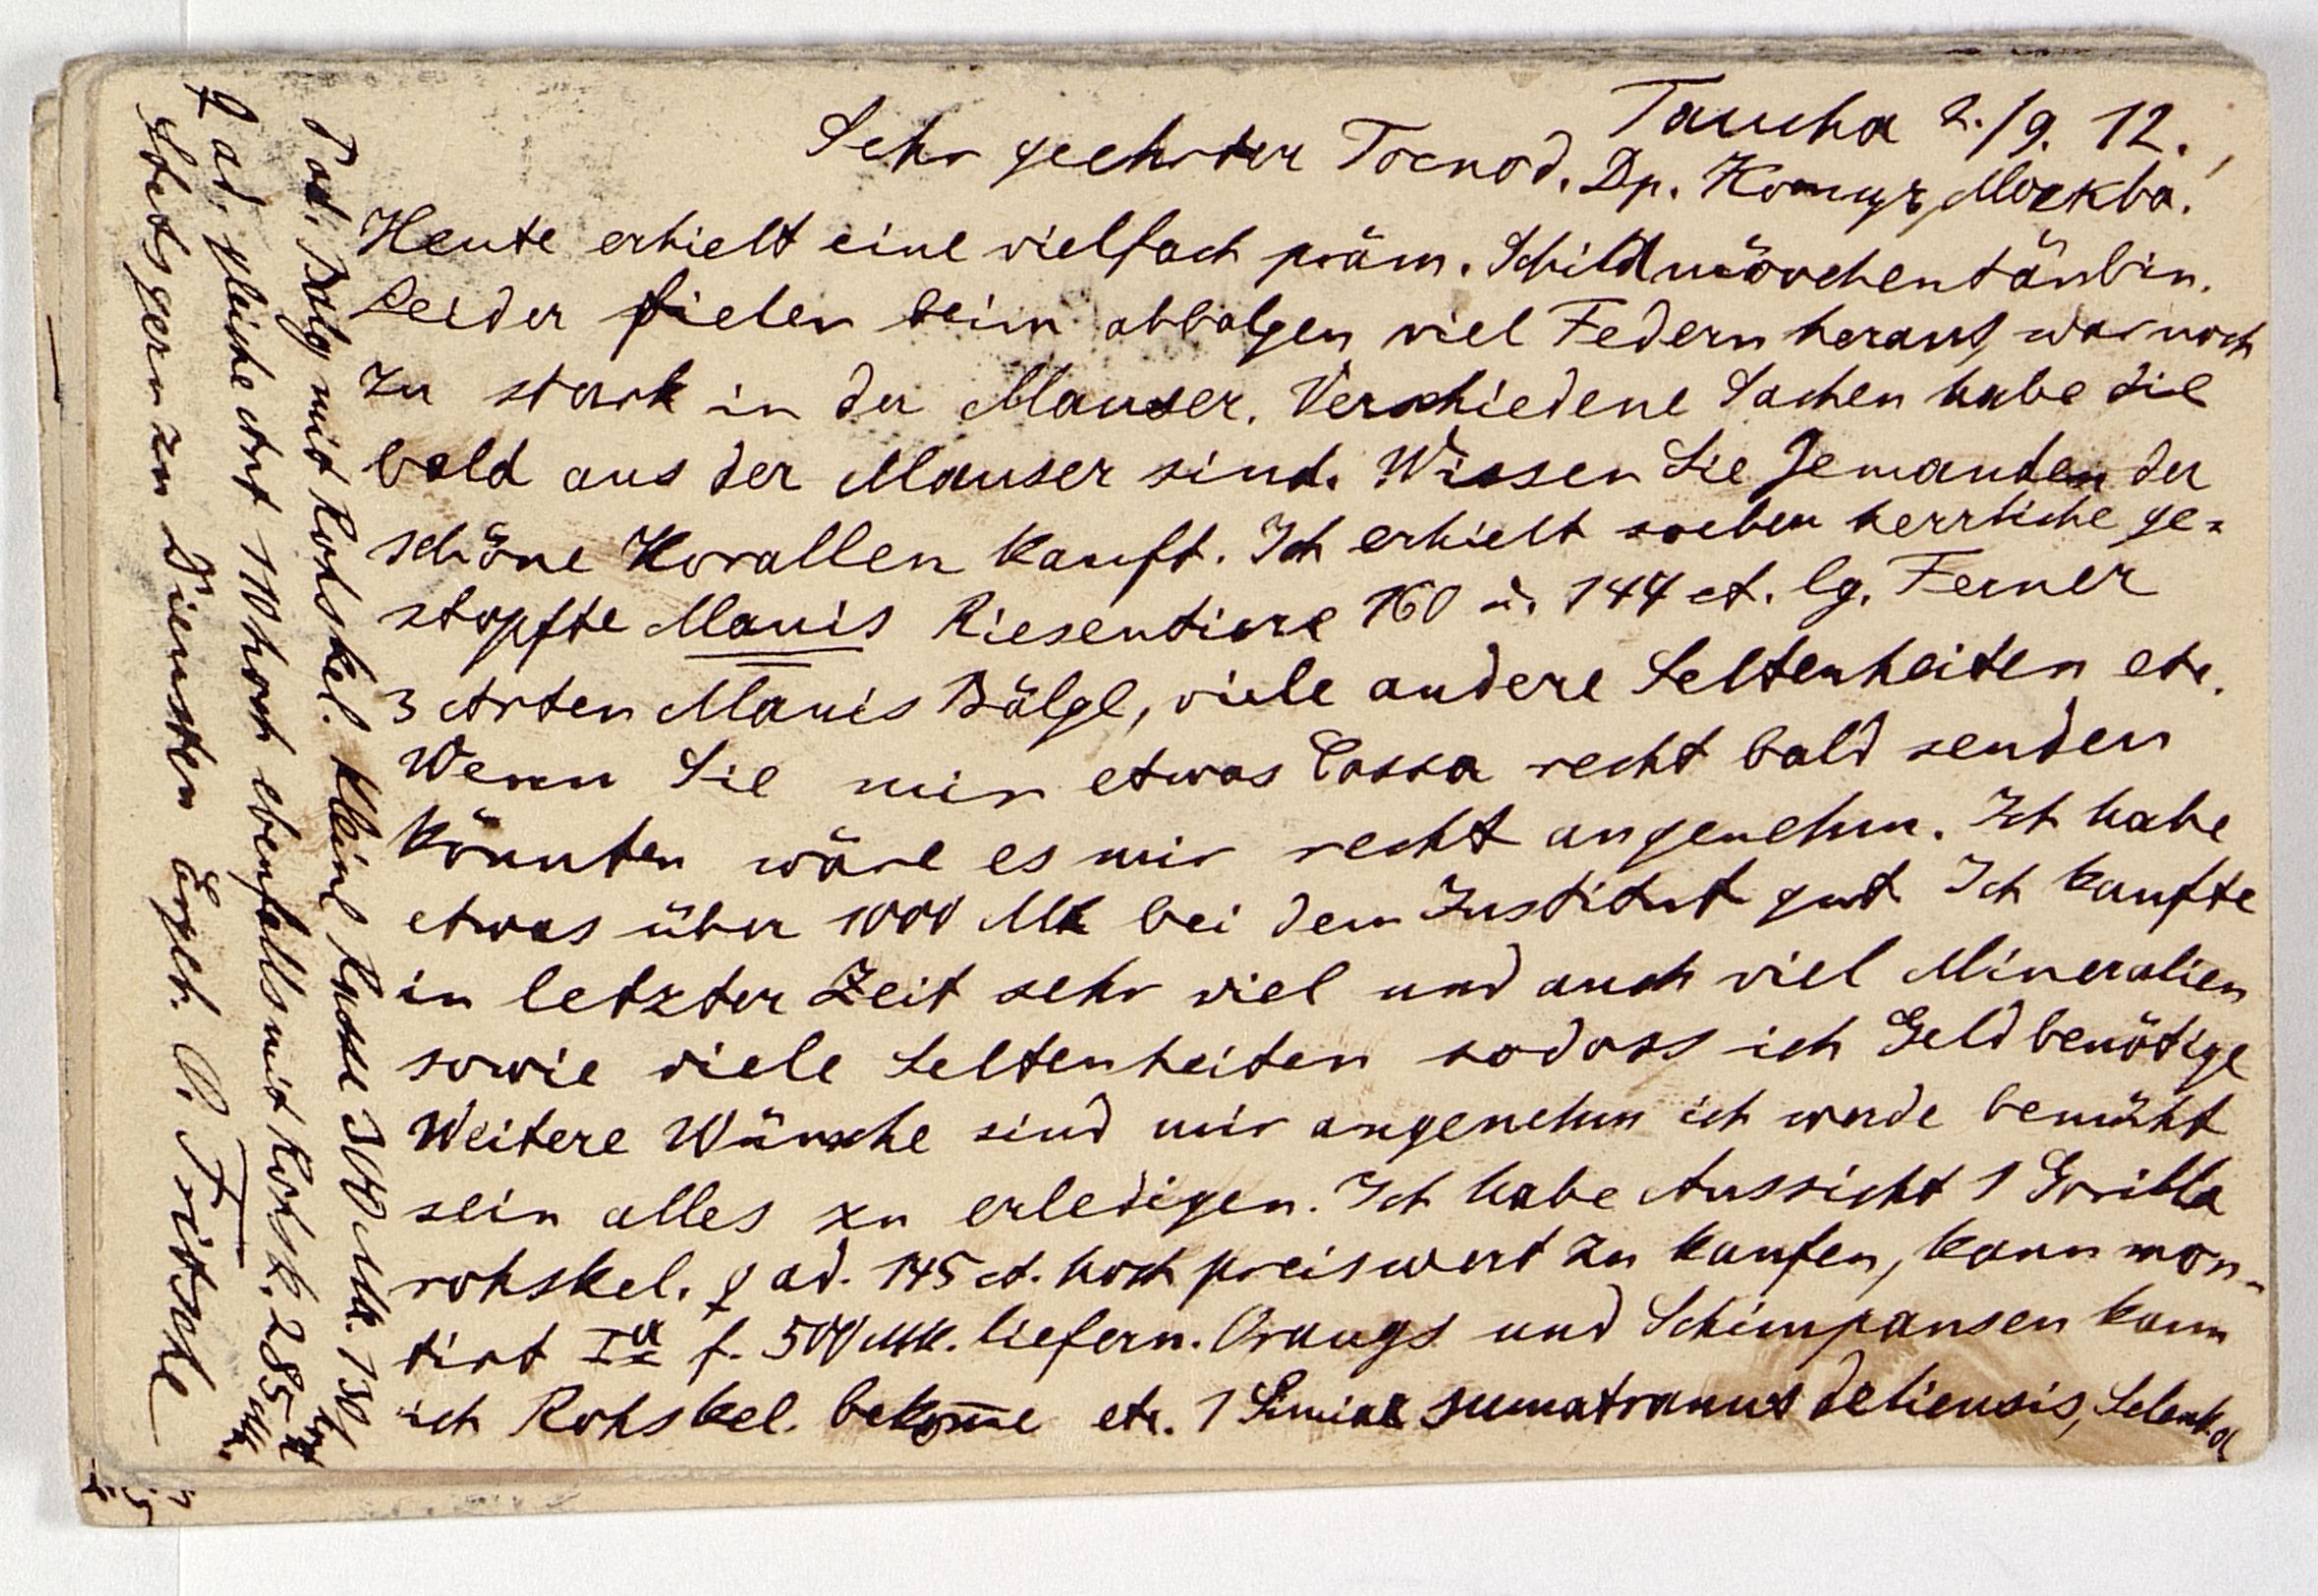 Taucha 2./9. 12.
Sehr geehrter Господ. Др. Котсъ, Москва.
Heute erhielt eine vielfach präm. Schildmövchentäubin.
Leider fielen beim abbalgen viel Federn heraus, war noch
zu stark in der Mauser. Verschiedene Sachen habe die
bald aus der Mauser sind. Wissen Sie Jemanden der
schöne Korallen kauft. Ich erhielt soeben herrliche ge-
stopfte Manis Riesentiere 160 u. 144 ct. lg. Ferner
3 Arten Manis Bälge, viele andere Seltenheiten etc.
Wenn Sie mir etwas Cassa recht bald senden
könnten wäre es mir recht angenehm. Ich habe
etwas über 1000 Mk bei dem Institut gut Ich kaufte
in letzter Zeit sehr viel und auch viel Mineralien
sowie viele Seltenheiten sodass ich Geld benötige
Weitere Wünsche sind mir angenehm ich werde bemüht
sein alles zu erledigen. Ich habe Aussicht 1 Gorilla
rohskel. ♀ ad. 145 ct. hoch preiswert zu kaufen, kann mon-
tirt Ia f. 500 Mk. liefern. Orangs und Schimpansen kann
ich Rohskel. bekom̅e etc. 1 Simiae sumatranus deliensis, Selenka
♂ ad. Balg mit Rohskel. kleine Rasse 300 Mk. 130 hoch
♀ ad. gleiche Art 110 hoch ebenfalls mit Rohsk. 285 Mk.
Stets gern zu Diensten Ergeb. O. Fritsche